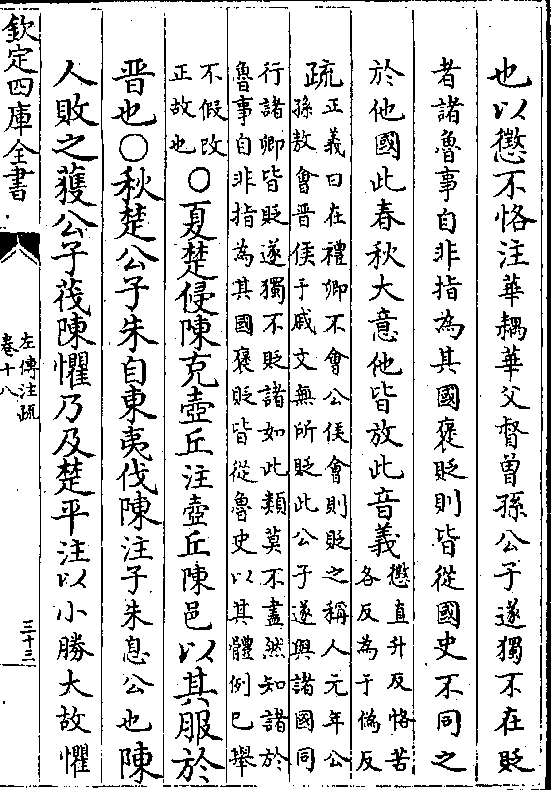 也以懲不恪注華耦華父督曾孫公子遂獨不在貶
者諸魯事自非指為其國褒貶則皆從國史不同之
於他國此春秋大意他皆放此音義懲直升反恪苦
各反為于偽反
疏正義曰在禮卿不會公侯會則貶之稱人元年公
孫敖會晉侯于戚文無所貶此公子遂與諸國同
行諸卿皆貶遂獨不貶諸如此類莫不盡然知諸於
魯事自非指為其國褒貶皆從魯史以其體例已舉
不假改
正故也○夏楚侵陳克壺丘注壺丘陳邑以其服於
晉也○秋楚公子朱自東夷伐陳注子朱息公也陳
人敗之獲公子茷陳懼乃及楚平注以小勝大故懼
欽定四庫全書
左傳注疏
卷十八
三十三